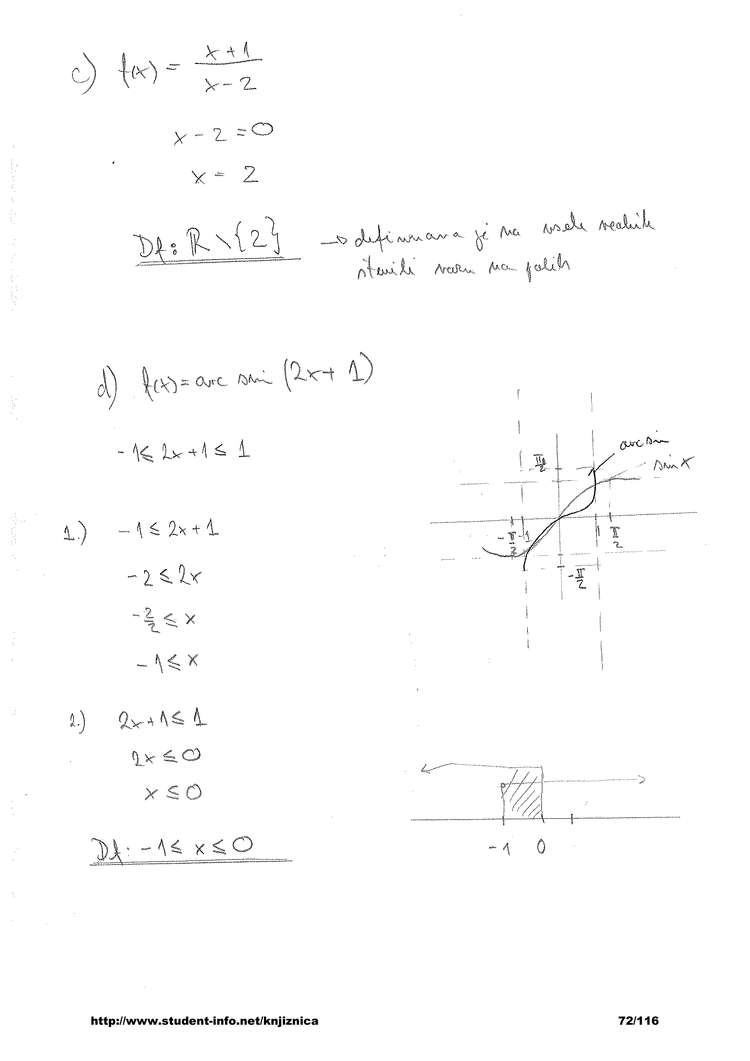 c) f(x) = \frac{x+1}{x-2}
x - 2 = 0
x = 2
Df: ℝ \ {2} → definirana je na vseh realnih
številih razen na polih
d) f(x) = arc sin (2x + 1)
-1 ≤ 2x + 1 ≤ 1
1.) -1 ≤ 2x + 1
-2 ≤ 2x
-\frac{2}{2} ≤ x
-1 ≤ x
arc sin
sin x
\frac{π}{2}
-\frac{π}{2} -1 1 \frac{π}{2}
-\frac{π}{2}
2.) 2x + 1 ≤ 1
2x ≤ 0
x ≤ 0
Df: -1 ≤ x ≤ 0
-1 0
http://www.student-info.net/knjiznica 72/116